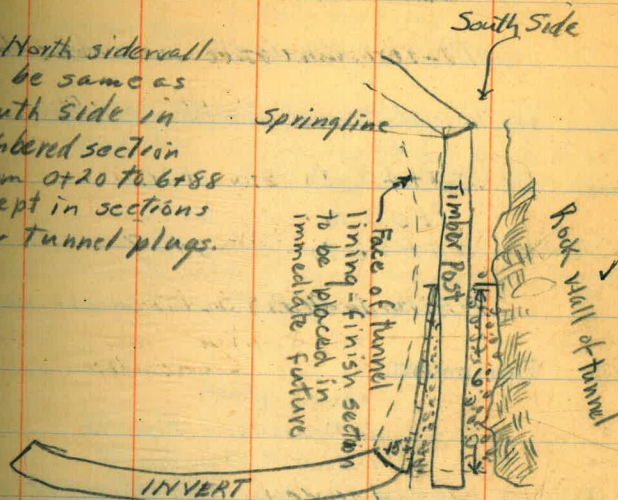 North sidewall
be same as
uth side in
mbered section
m 0+20 to 6+88
ept in sections
tunnel plugs.
South Side
Springline
Timber Post
Face of tunnel
lining-finish section
to be placed in
immediate future
Rock Wall of tunnel
INVERT